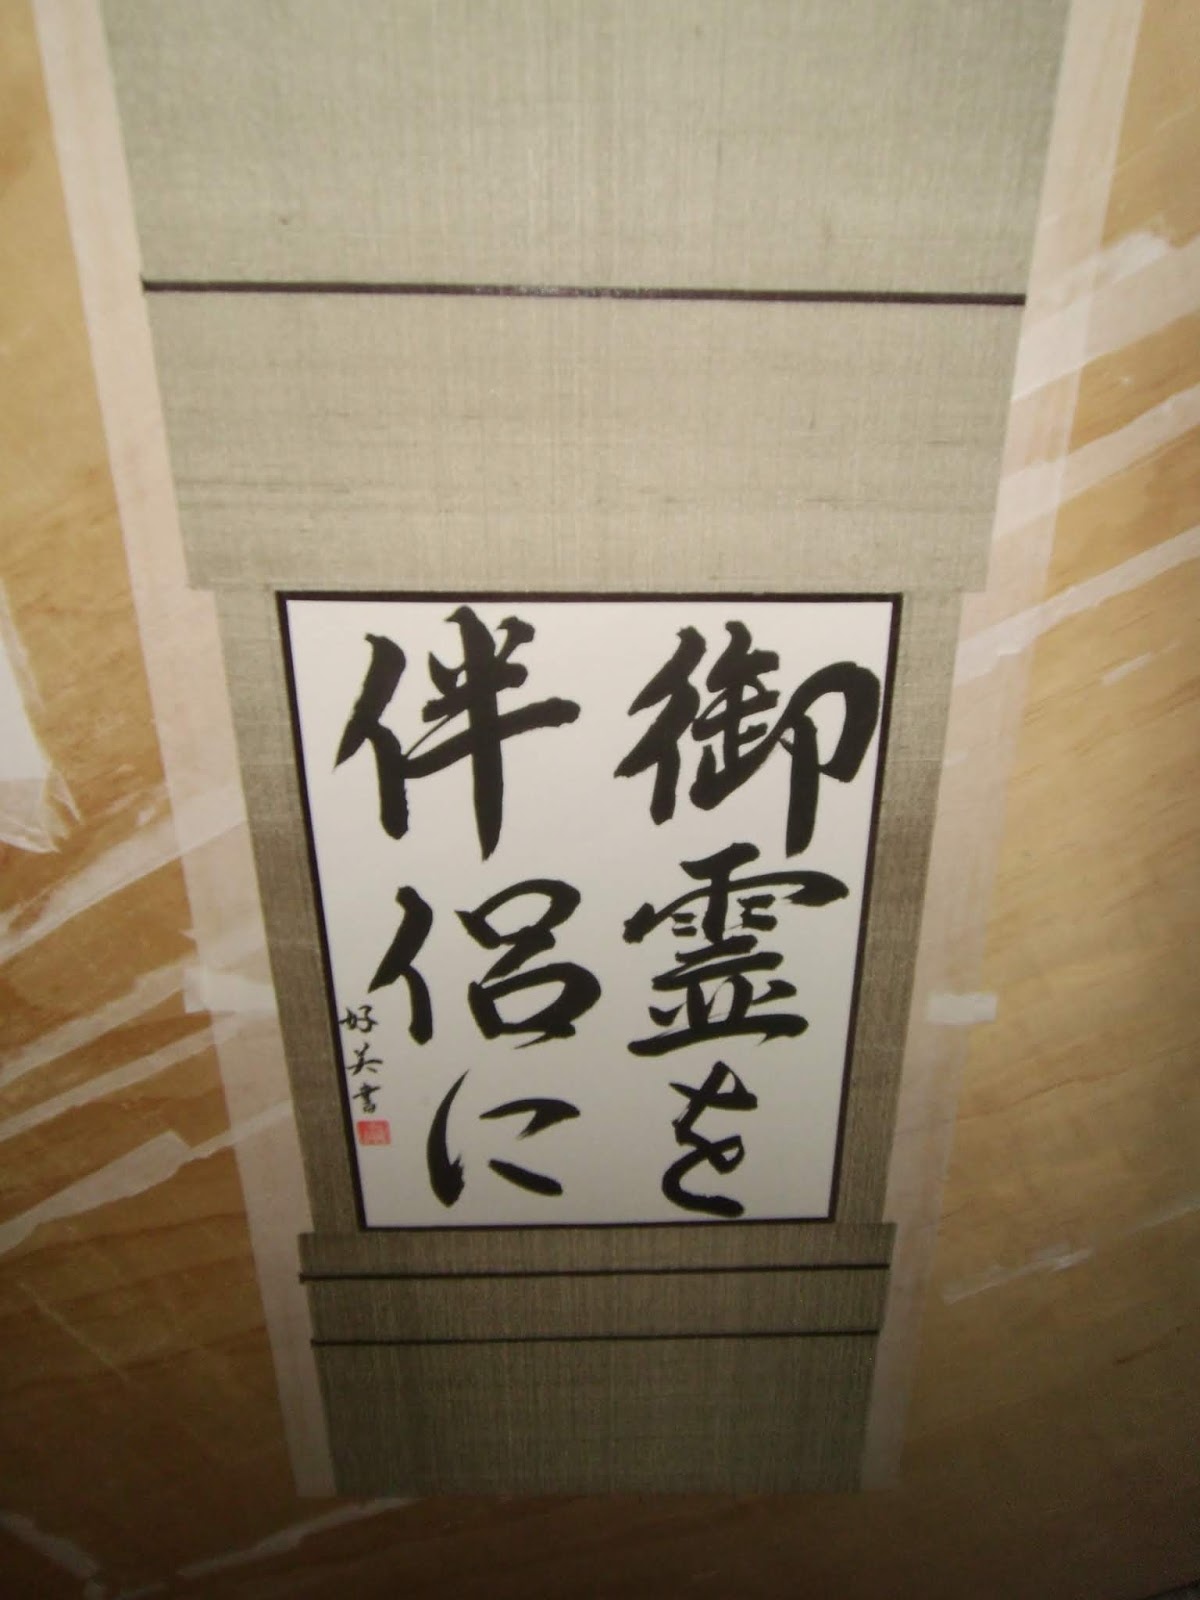 御霊を
伴侶に
好英書